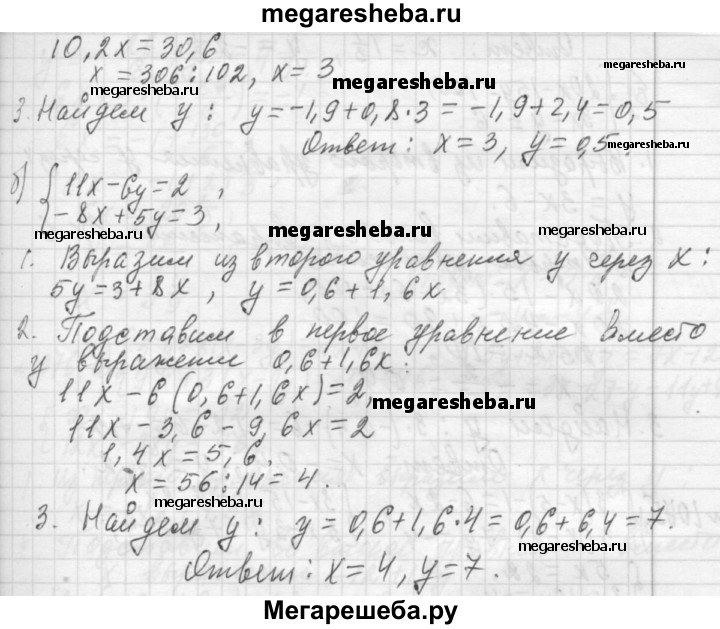 megaresheba.ru
10,2x=30,6
x=306:102, x=3
megaresheba.ru
megaresheba.ru
3. Найдем y: y=-1,9+0,8·3=-1,9+2,4=0,5
Ответ: x=3, y=0,5.
megaresheba.ru
б) { 11x-6y=2 ,
-8x+5y=3 ,
megaresheba.ru
megaresheba.ru
megaresheba.ru
1. Выразим из второго уравнения y через x:
5y=3+8x, y=0,6+1,6x
2. Подставим в первое уравнение вместо
y выражении 0,6+1,6x:
11x-6(0,6+1,6x)=2,
megaresheba.ru
11x-3,6-9,6x=2
1,4x=5,6.
x=56:14=4.
megaresheba.ru
3. Найдем y: y=0,6+1,6·4=0,6+6,4=7.
megaresheba.ru
Ответ: x=4, y=7.
Мегарешеба.ру